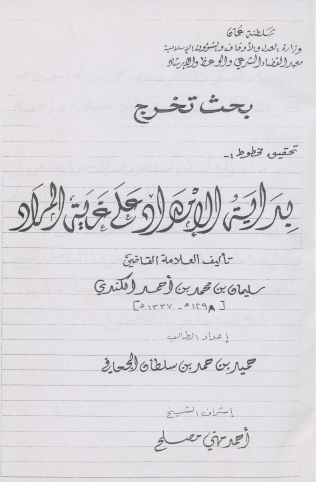 سلطنة عمان
وزارة العدل والأوقاف والشؤون الإسلامية
معهد القضاء الشرعي والوعظ والإرشاد
بحث تخرج
تحقيق مخطوط :ـ
بداية الإمداد على غاية المراد
تأليف العلامة القاضي
سليمان بن محمد بن أحمد الكندي
[ ١٢٩٨هـ - ١٣٣٧هـ ]
إعداد الطالب
حميد بن حمد بن سلطان الجعافي
إشراف الشيخ
أحمد مهني مصلح